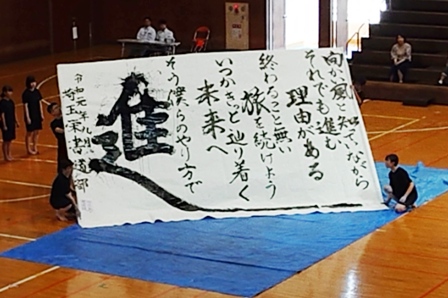 向かい風と知っていながら
それでも進む
理由がある
終わること無い
旅を続けよう
いつかきっと辿り着く
未来へ
そう僕らのやり方で
進
令和元年九月
埼玉栄書道部